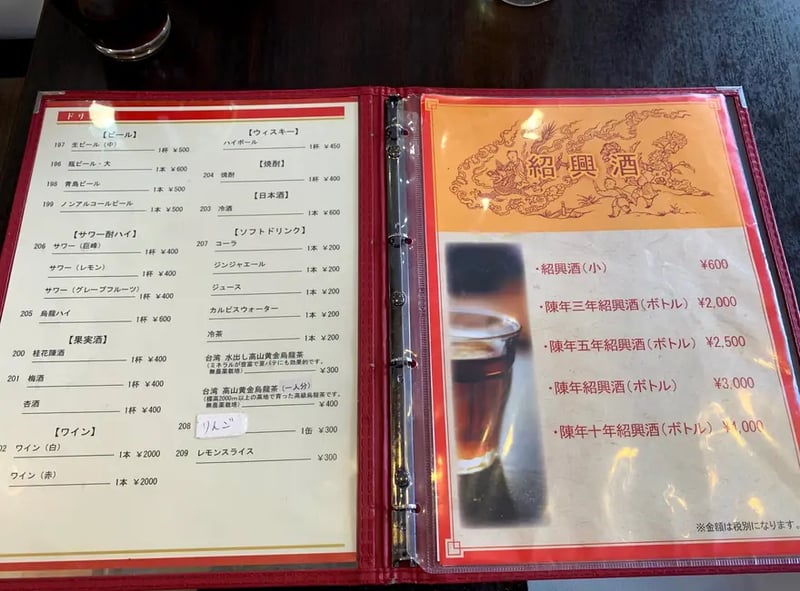 ドリ
【ビール】
197 生ビール（中） 1杯 ¥500
196 瓶ビール・大 1本 ¥600
198 青島ビール 1本 ¥500
199 ノンアルコールビール 1本 ¥500
【サワー酎ハイ】
206 サワー（巨峰） 1杯 ¥400
サワー（レモン） 1杯 ¥400
サワー（グレープフルーツ） 1杯 ¥400
205 烏龍ハイ 1杯 ¥600
【果実酒】
200 桂花陳酒 1杯 ¥400
201 梅酒 1杯 ¥400
杏酒 1杯 ¥400
【ワイン】
02 ワイン（白） 1本 ¥2000
ワイン（赤） 1本 ¥2000
【ウィスキー】
ハイボール 1杯 ¥450
【焼酎】
204 焼酎 1杯 ¥400
【日本酒】
203 冷酒 1本 ¥600
【ソフトドリンク】
207 コーラ 1本 ¥200
ジンジャエール 1本 ¥200
ジュース 1本 ¥200
カルピスウォーター 1本 ¥200
冷茶 1本 ¥200
台湾 水出し高山黄金烏龍茶
（ミネラルが豊富で夏バテにも効果的です。
無農薬栽培） ¥300
台湾 高山黄金烏龍茶 （一人分）
（標高2000m以上の高地で育った高級烏龍茶です。
無農薬栽培） ¥400
208 りんご 1缶 ¥300
209 レモンスライス ¥300
紹興酒
・紹興酒（小） ¥600
・陳年三年紹興酒（ボトル） ¥2,000
・陳年五年紹興酒（ボトル） ¥2,500
・陳年紹興酒（ボトル） ¥3,000
・陳年十年紹興酒（ボトル）
※金額は税別になります。